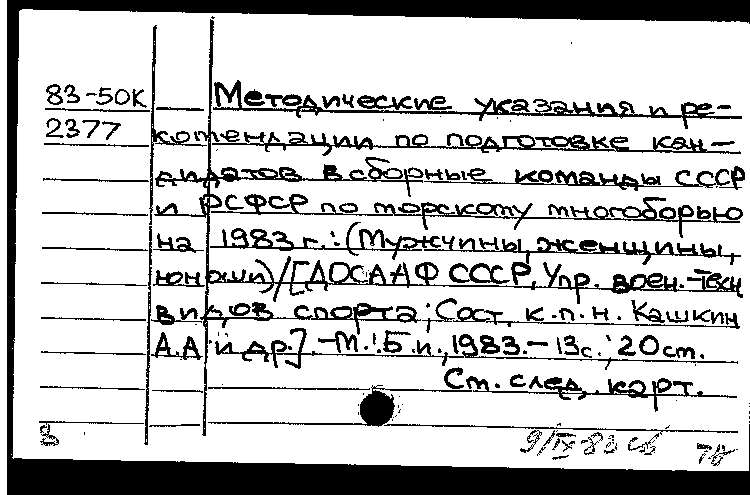 83-50К Методические указания и ре-
2377 комендации по подготовке кан-
дидатов в сборные команды СССР
и РСФСР по морскому многоборью
на 1983 г.: (Мужчины, женщины,
юноши)/[ДОСААФ СССР, Упр. воен.-техн
видов спорта; Сост. к.п.н. Кашкин
А.А и др.]. -М.: Б.и., 1983.- 13с.; 20см.
См. след. карт.
9/IX-83